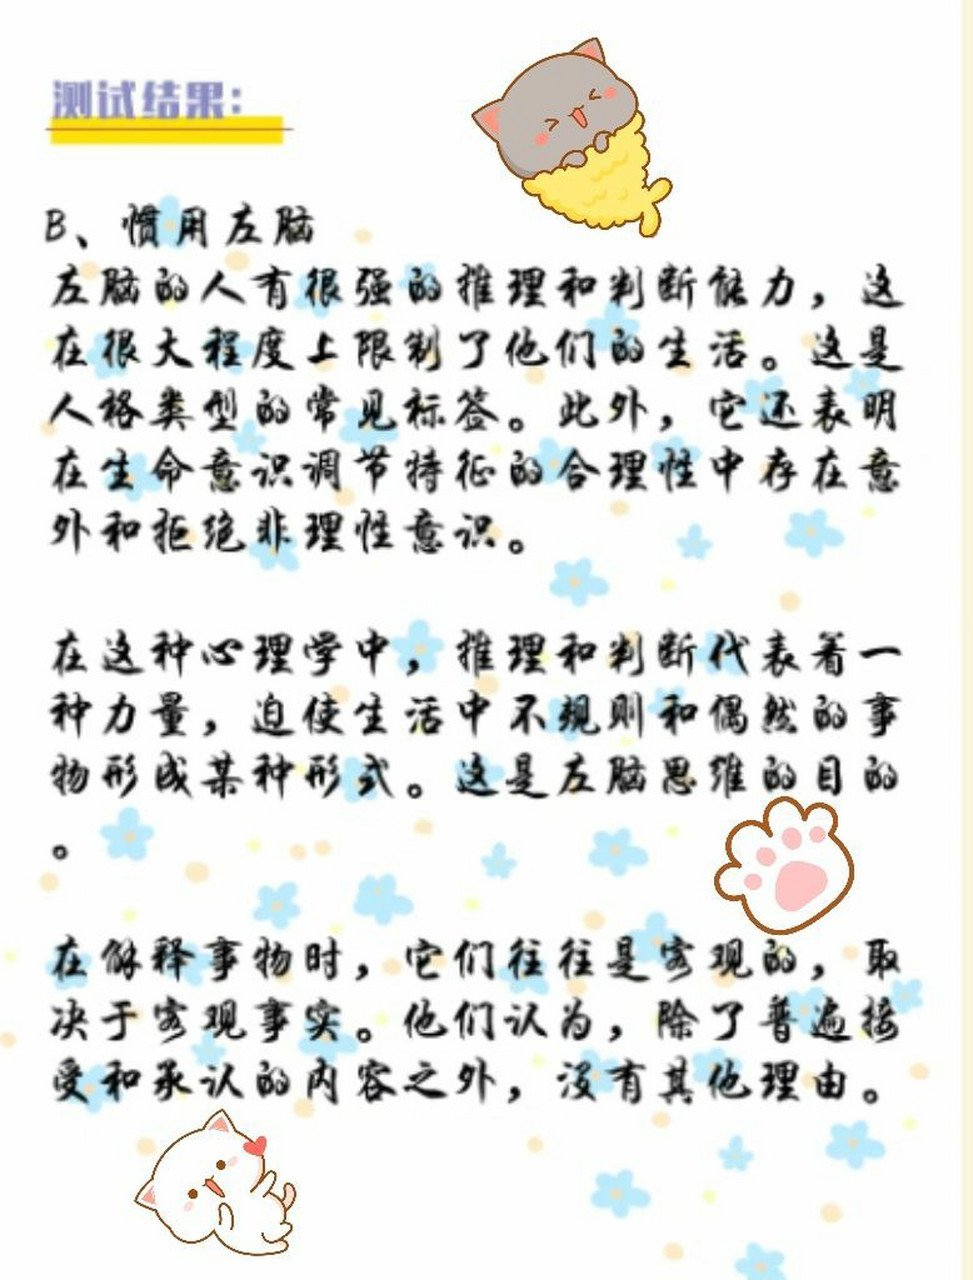 测试结果:
B、惯用左脑
左脑的人有很强的推理和判断能力，这
在很大程度上限制了他们的生活。这是
人格类型的常见标签。此外，它还表明
在生命意识调节特征的合理性中存在意
外和拒绝非理性意识。
在这种心理学中，推理和判断代表着一
种力量，迫使生活中不规则和偶然的事
物形成某种形式。这是左脑思维的目的
。
在解释事物时，它们往往是客观的，取
决于客观事实。他们认为，除了普遍接
受和承认的内容之外，没有其他理由。